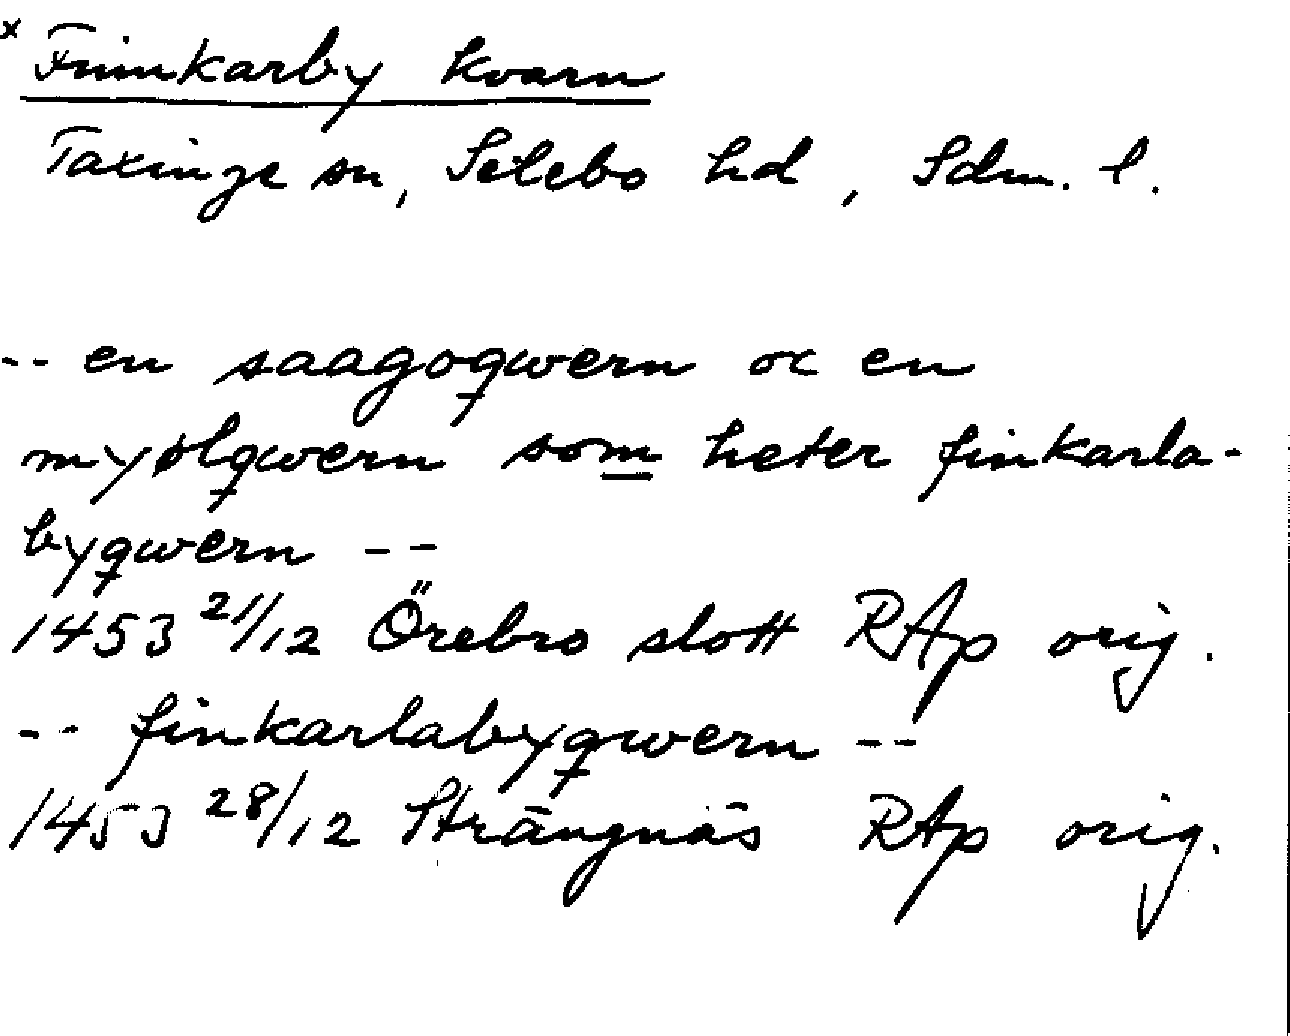 x Finnkarby kvarn
Taxinge sn, Selebo hd, Sdm. l.
-- en saagoqwern oc en
myølqwern som heter finkarla-
byqwern --
1453 21/12 Örebro slott RAp orig.
-- finkarlabyqwern --
1453 28/12 Strängnäs RAp orig.